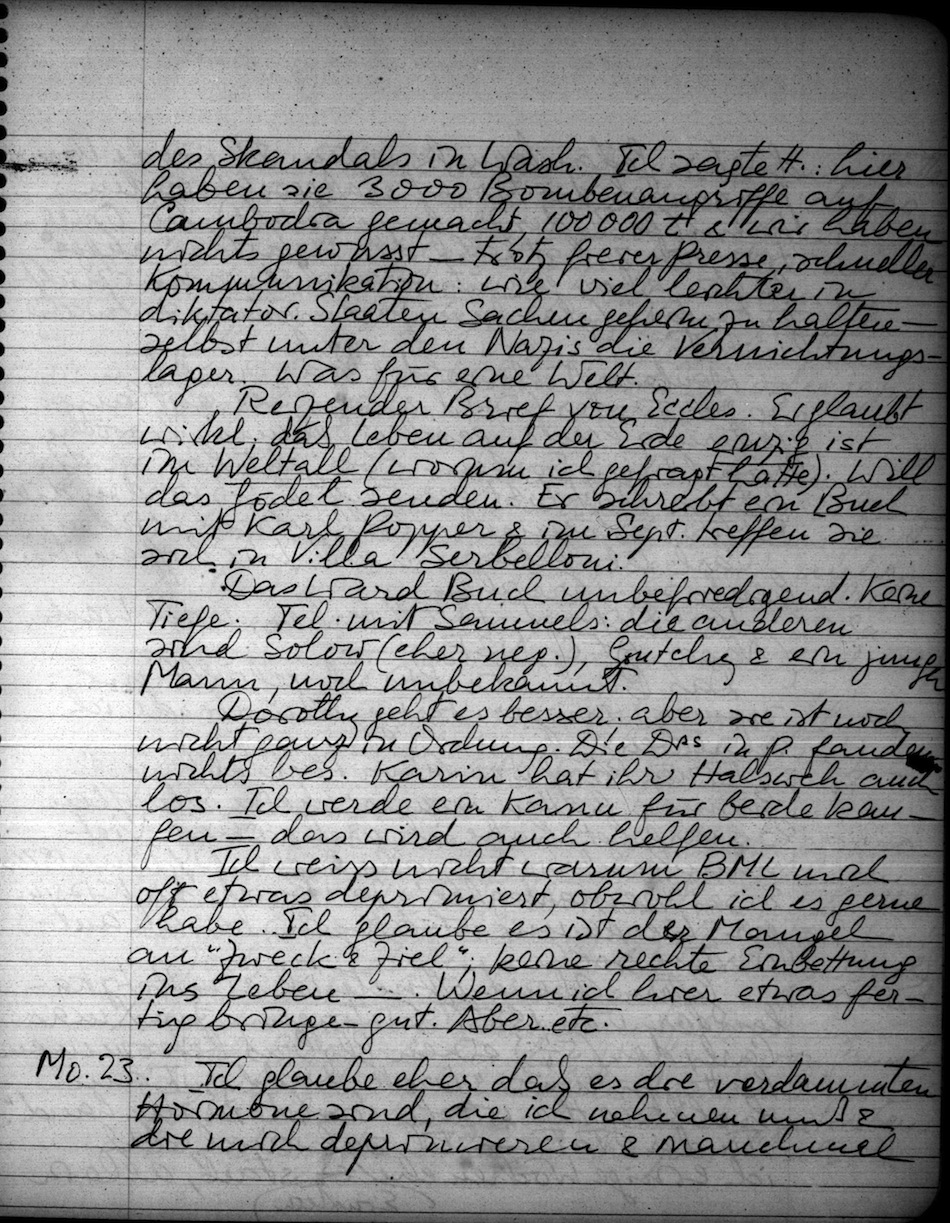 des Skandals in Wash. Ich sagte H.: hier
haben sie 3000 Bombenangriffe auf
Cambodia gemacht, 100000 t & wir haben
nichts gewusst — trotz freier Presse, schneller
Kommunikation: wie viel leichter in
diktator. Staaten Sachen geheim zu halten —
selbst unter den Nazis die Vernichtungs-
lager. Was für eine Welt.
Reizender Brief von Eccles. Er glaubt
wirkl. daß Leben auf der Erde einzig ist
im Weltall (worum ich gefragt hatte). Will
das Gödel senden. Er schreibt ein Buch
mit Karl Popper & im Sept. treffen sie
sich in Villa Serbelloni.
Das Ward Buch unbefriedigend. Keine
Tiefe. Tel. mit Samuels: die anderen
sind Solow (eher neg.), & ein junger
Mann, noch unbekannt.
Dorothy geht es besser. aber sie ist noch
nicht ganz in Ordnung. Die Drs in P. fanden
nichts bes. Karin hat ihr Halsweh auch
los. Ich werde ein Kanu für beide kau-
fen — das wird auch helfen.
Ich weiss nicht warum BML mich
oft etwas deprimiert, obwohl ich es gerne
habe. Ich glaube es ist der Mangel
an "Zweck & Ziel"; keine rechte Einbettung
ins Leben —. Wenn ich hier etwas fer-
tig bringe – gut. Aber etc.
Mo. 23. Ich glaube eher daß es die verdammten
Hormone sind, die ich nehmen muß &
die mich deprimieren & manchmal